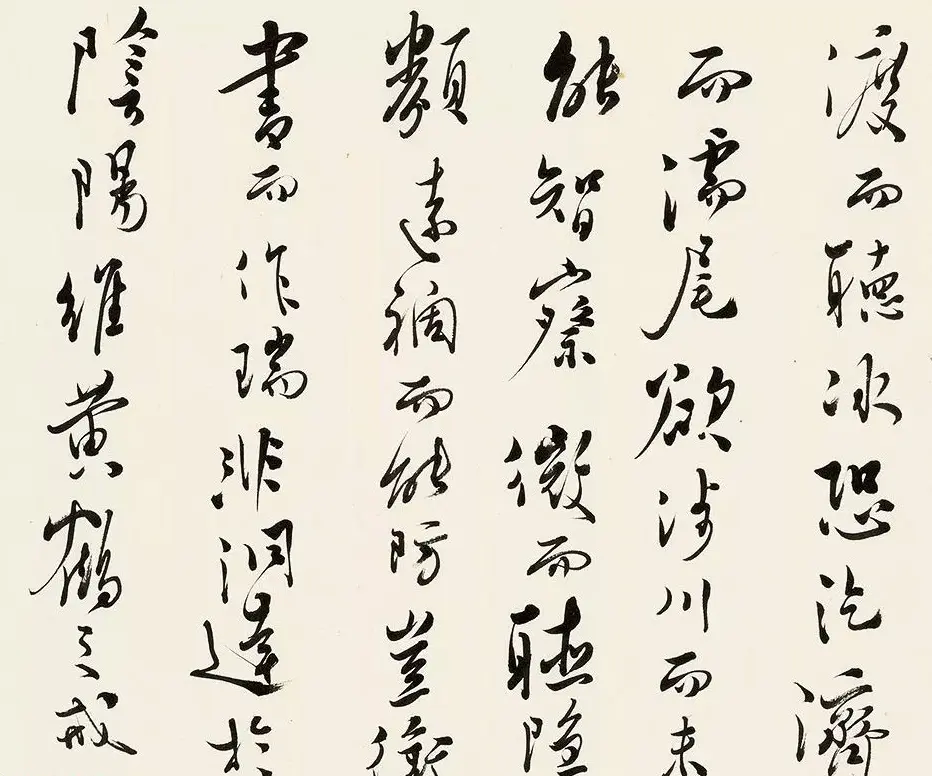 渡而聽冰恐汔濟
而濡尾欲涉川而未
能智察微而聽隱
類遠禍而能防豈銜
書而作瑞非洞達於
陰陽維黄鶴之戒